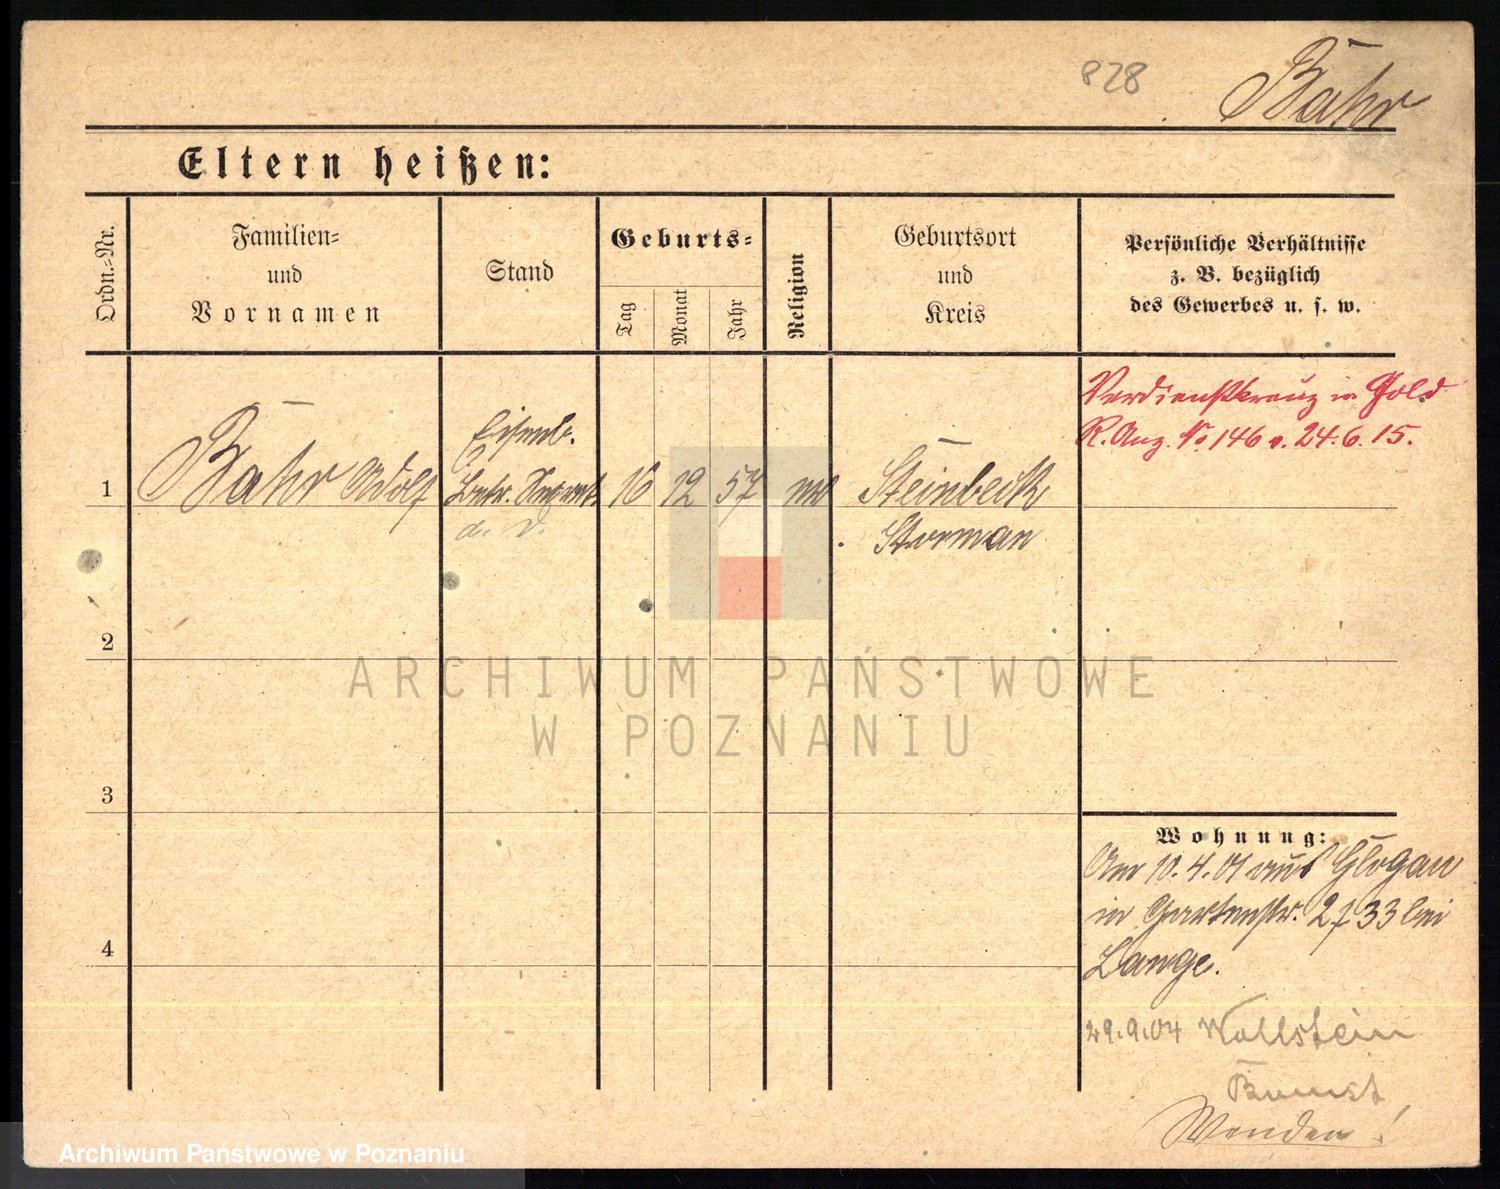 828
Bähr
Eltern heißen:
Ordn.-Nr.
Familien-
und
Vornamen
Stand
Geburts-
Tag
Monat
Jahr
Religion
Geburtsort
und
Kreis
Persönliche Verhältnisse
z. B. bezüglich
des Gewerbes u. s. w.
Verdienstkreuz in Gold
R. Anz. No 146 v. 24.6.15.
1
Bähr Adolf
Eisenb.
Betr. Sekret.
a. D.
16
12
57
ev
Steinbeck
Storman
2
3
4
Wohnung:
Am 10.4.01 aus Glogau
in Gartenstr. 2 f 33 bei
Lange.
29.9.04 Wollstein
Bomst
Wenden!
ARCHIWUM PAŃSTWOWE
W POZNANIU
Archiwum Państwowe w Poznaniu